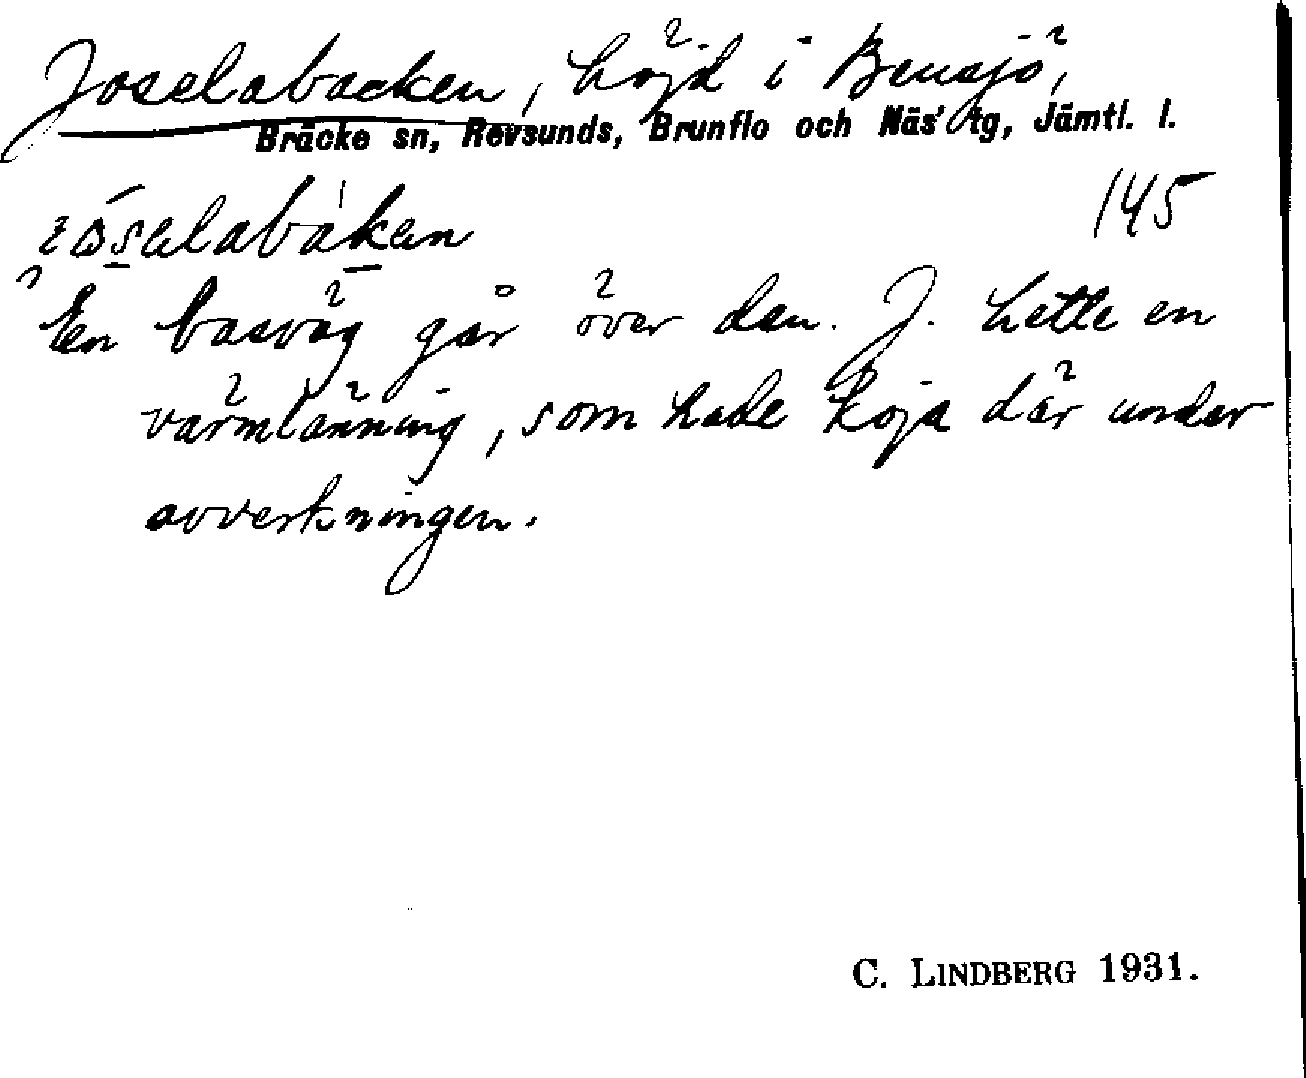 Joselabacken, höjd i Bensjö,
Bräcke sn, Revsunds, Brunflo och Näs' tg, Jämtl. l.
145
En basväg går över den. J. hette en
värmlänning, som hade koja där under
avverkningen.
C. LINDBERG 1931.